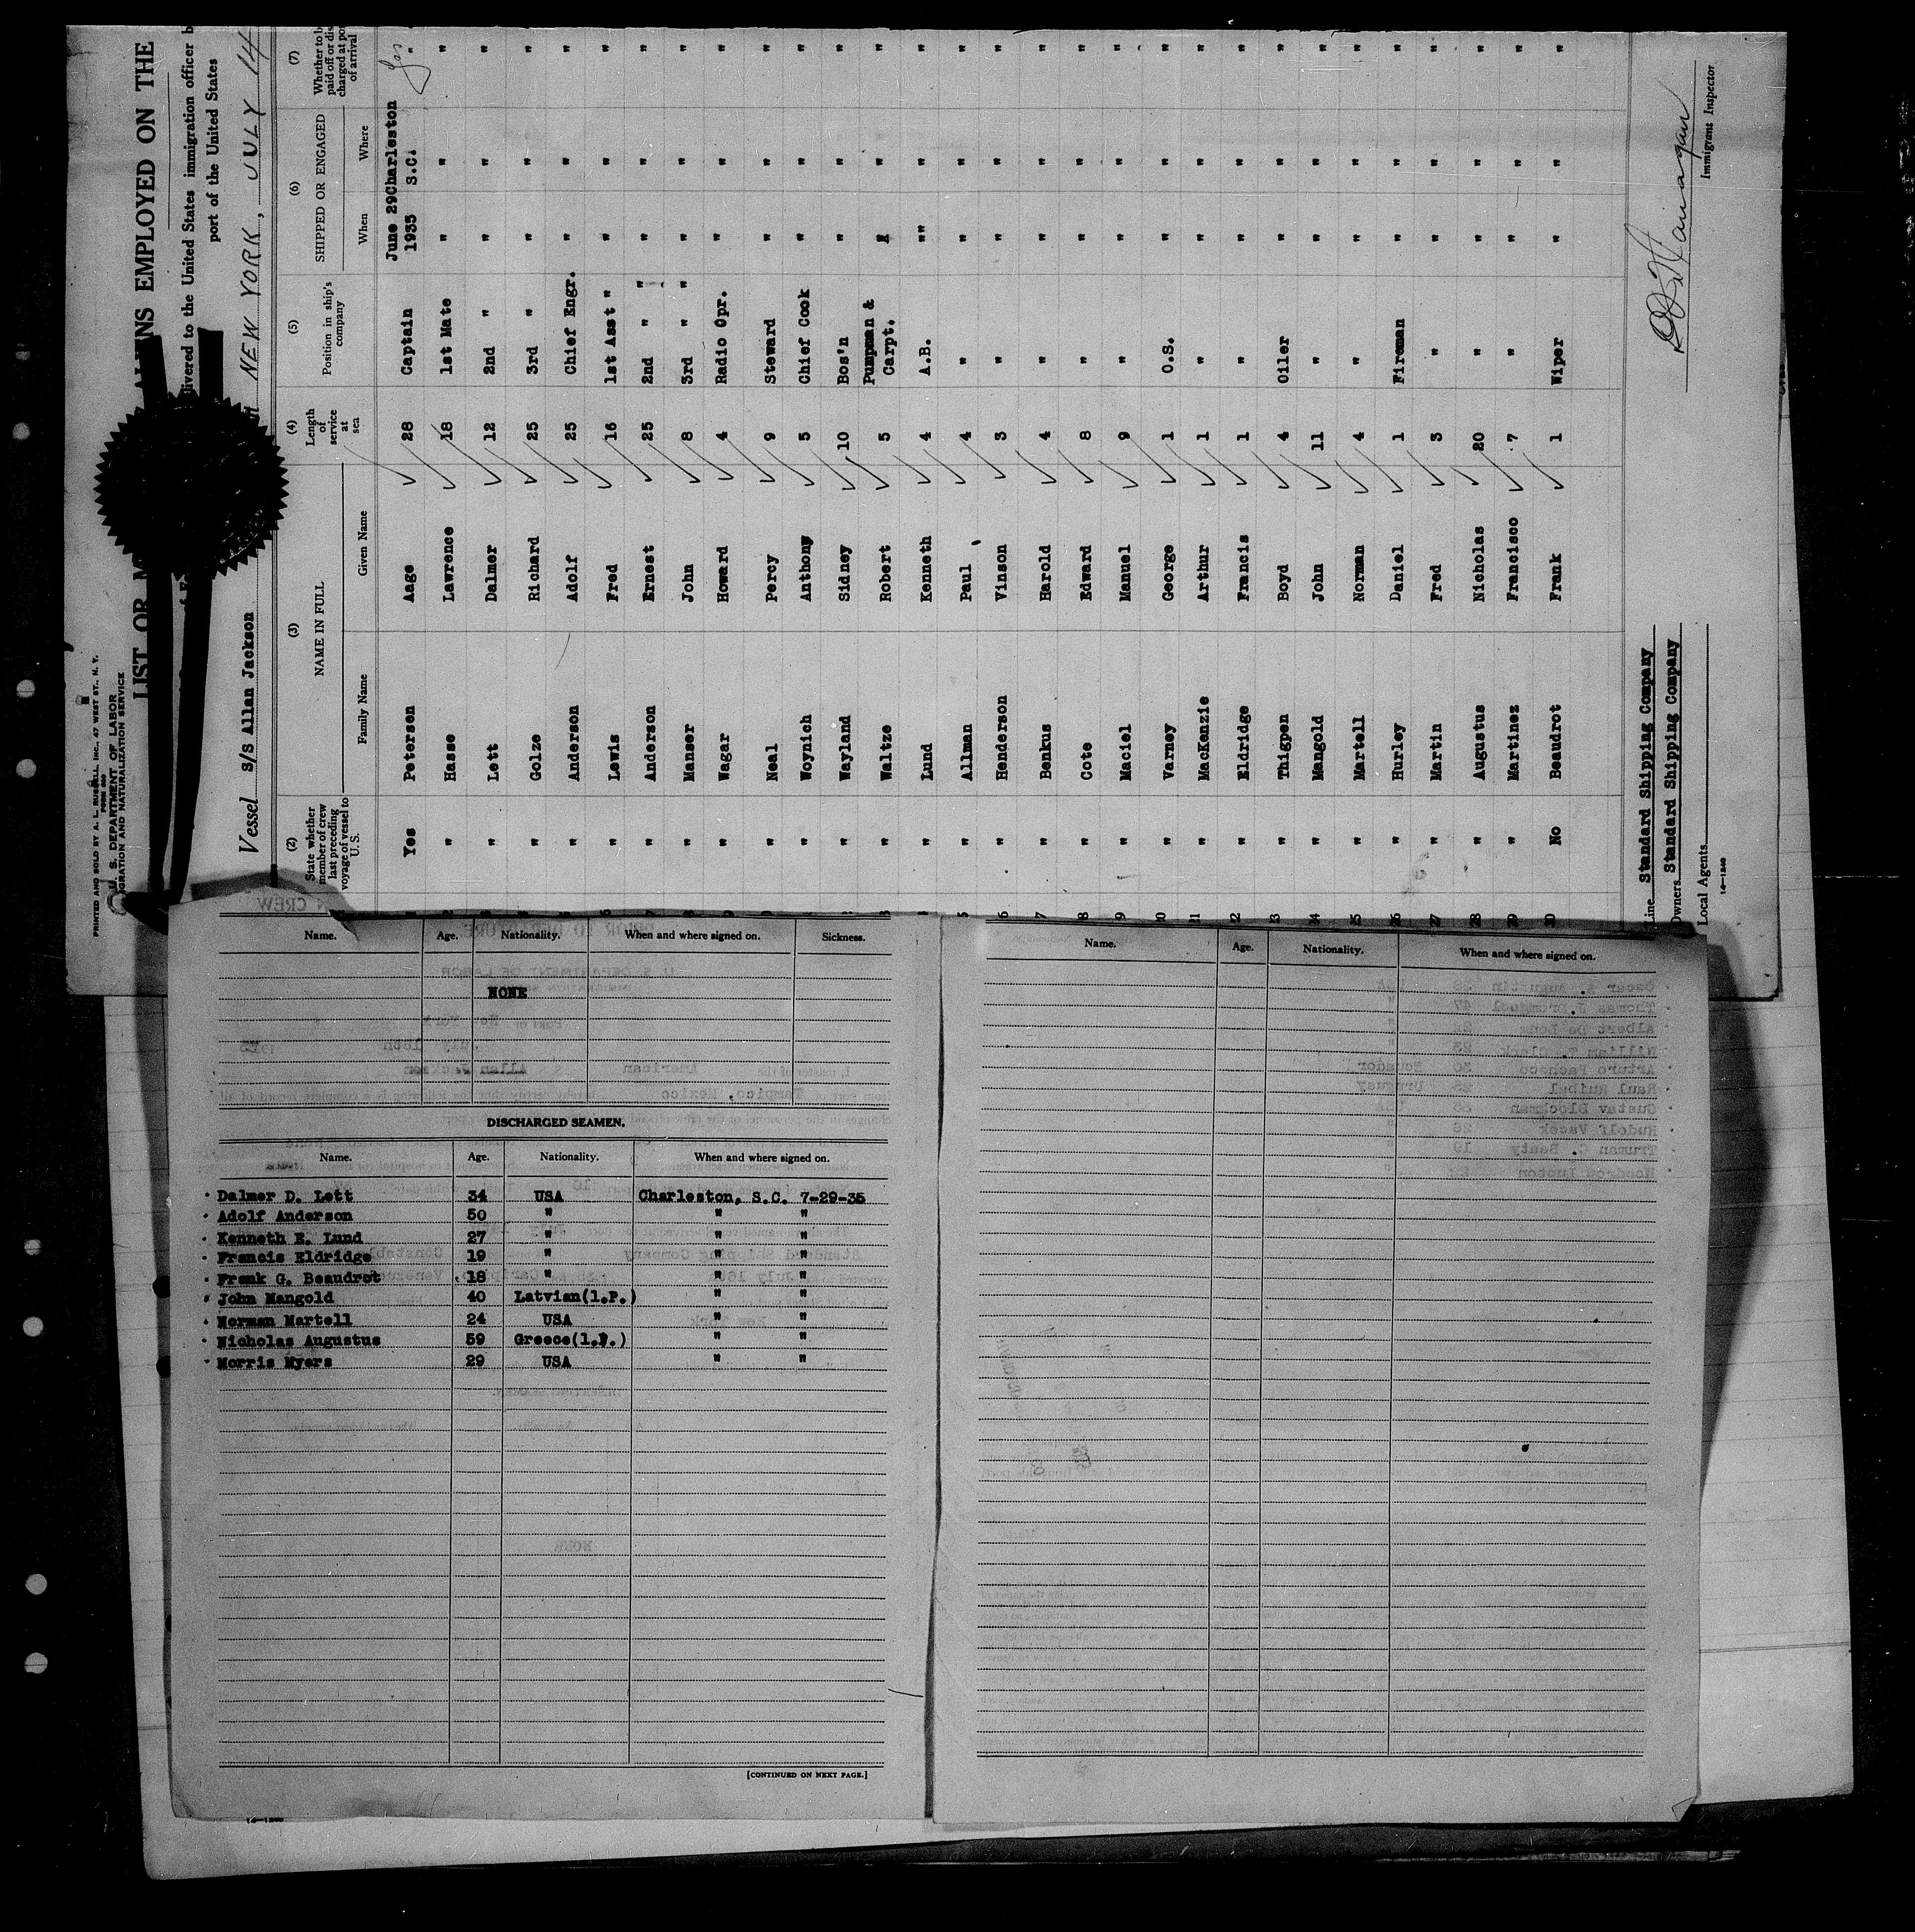 PRINTED AND SOLD BY A. L. RUSSELL, INC., 47 WEST ST., N. Y.
FORM 680
U. S. DEPARTMENT OF LABOR
IGRATION AND NATURALIZATION SERVICE
LIST OR ALIENS EMPLOYED ON THE
livered to the United States immigration officer b
port of the United States
Vessel S/S Allan Jackson NEW YORK, JULY 14
(2) (3) (4) (5) (6) (7)
State whether member of crew last preceding voyage of vessel to U. S.
NAME IN FULL
Family Name Given Name
Length of service at sea
Position in ship's company
SHIPPED OR ENGAGED
When Where
Whether to b paid off or dis charged at po of arrival
Yes Petersen Aage 28 Captain June 29 1935 Charleston S.C. Yes
" Hasse Lawrence 18 1st Mate " " "
" Lett Dalmer 12 2nd " " " "
" Golze Richard 25 3rd " " " "
" Anderson Adolf 25 Chief Engr. " " "
" Lewis Fred 16 1st Asst " " " "
" Anderson Ernest 25 2nd " " " " "
" Manser John 8 3rd " " " " "
" Wagar Howard 4 Radio Opr. " " "
" Neal Percy 9 Steward " " "
" Woynich Anthony 5 Chief Cook " " "
" Wayland Sidney 10 Bos'n " " "
" Waltze Robert 5 Pumpman & Carpt. " " "
" Lund Kenneth 4 A.B. "" " "
5 " Allman Paul 4 " " " "
6 " Henderson Vinson 3 " " " "
7 " Benkus Harold 4 " " " "
8 " Cote Edward 8 " " " "
9 " Maciel Manuel 9 " " " "
20 " Varney George 1 O.S. " " "
21 " MacKenzie Arthur 1 " " " "
22 " Eldridge Francis 1 " " " "
23 " Thigpen Boyd 4 Oiler " " "
24 " Mangold John 11 " " " "
25 " Martell Norman 4 " " " "
26 " Hurley Daniel 1 Fireman " " "
27 " Martin Fred 3 " " " "
28 " Augustus Nicholas 20 " " " "
29 " Martinez Francisco 7 " " " "
30 No Beaudrot Frank 1 Wiper " " "
Line Standard Shipping Company
Owners Standard Shipping Company
Local Agents
14—1240
Immigrant Inspector
Name. Age. Nationality. When and where signed on. Sickness.
NONE
DISCHARGED SEAMEN.
Name. Age. Nationality. When and where signed on.
Dalmer D. Lett 34 USA Charleston, S.C. 7-29-35
Adolf Anderson 50 " " "
Kenneth E. Lund 27 " " "
Francis Eldridge 19 " " "
Frank G. Beaudrot 18 " " "
John Mangold 40 Latvian(l.P.) " "
Norman Martell 24 USA " "
Nicholas Augustus 59 Greece(l.P.) " "
Morris Myers 29 USA " "
[CONTINUED ON NEXT PAGE.]
Name. Age. Nationality. When and where signed on.